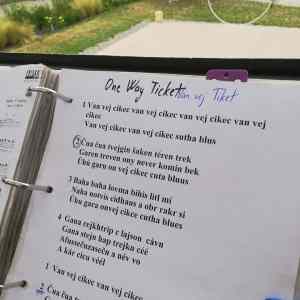 One Way Ticket Van vej Tiket
1 Van vej cikec van vej cikec van vej cikec van vej
cikec
Van vej cikec van vej cikec sutha blus
2 Čua čua tvejgin šaken téren trek
Garen treven ony never komin bek
Úbú gara on vej cikec cuta bluus
3 Baba baba lovma bihis litl mi
Naha notvis cidhaus a obr rakr si
Úbu gara onvej cikec cutha blues
4 Gana rejkhtrip c lajson cávn
Gana stejn hap trejka céé
Afuusefuzasečn a név vo
A kár cicu véél
1 Van vej cikec van vej cikec
2 Čua čua